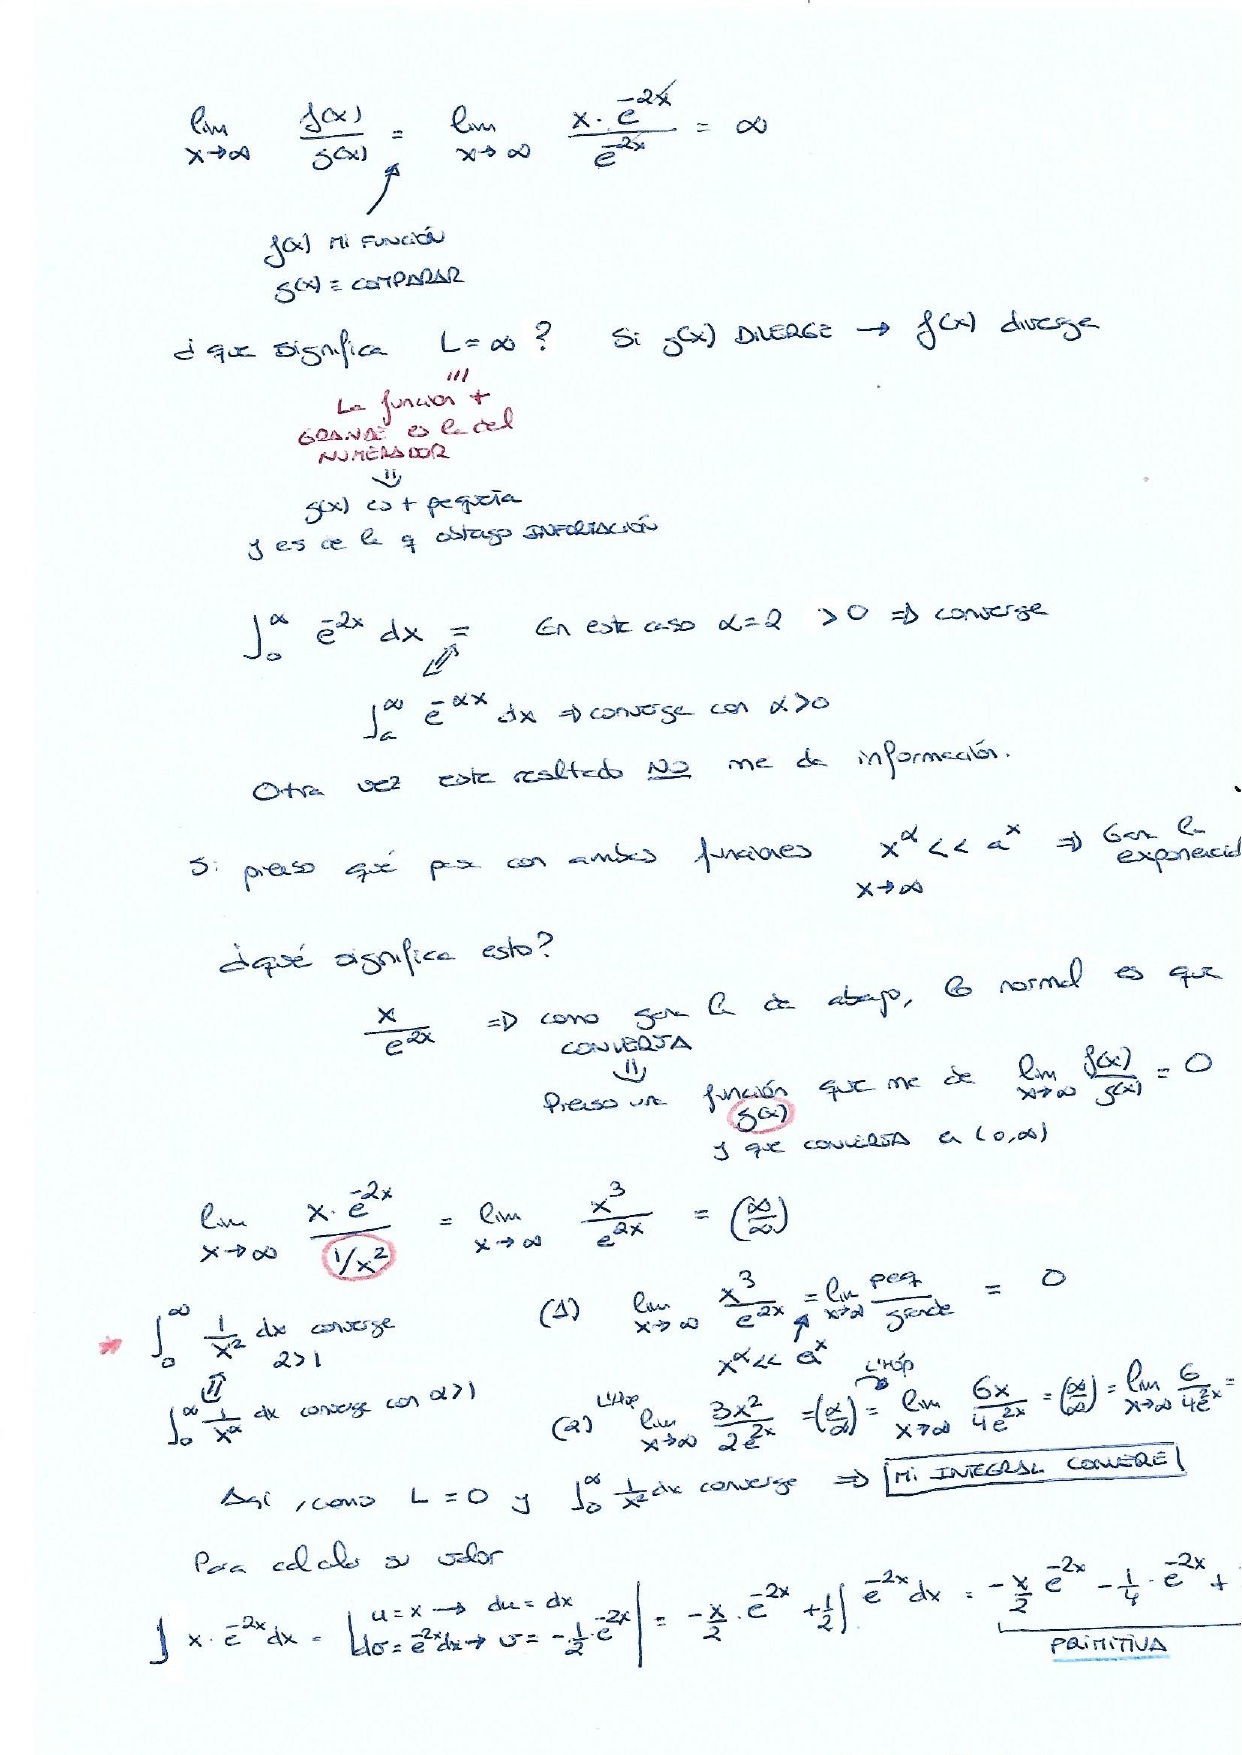 lim x→∞ f(x)/g(x) = lim x→∞ x·e^-2x / e^-2x = ∞
f(x) MI FUNCIÓN
g(x) ≡ COMPARAR
¿que significa L=∞? Si g(x) DIVERGE → f(x) diverge
La función +
GRANDE es la del
NUMERADOR
⇓
g(x) es + pequeña
y es de la q obtengo INFORMACIÓN
∫_0^∞ e^-2x dx = En este caso α=2 >0 ⇒ converge
∫_a^∞ e^-αx dx ⇒ converge con α>0
Otra vez este resultado NO me da información.
Si pienso qué pasa con ambas funciones x^α << a^x ⇒ Gana la
x→∞ exponencial
¿qué significa esto?
x/e^2x ⇒ como gana la de abajo, lo normal es que
CONVERJA
⇓
Pienso una función que me de lim x→∞ f(x)/g(x) = 0
g(x)
y que CONVERJA en (0,∞)
lim x→∞ x·e^-2x / (1/x²) = lim x→∞ x³/e^2x = (∞/∞)
(1) lim x→∞ x³/e^2x = lim x→∞ peq/grande = 0
* ∫_0^∞ 1/x² dx converge
2>1
x^α << a^x
∫_0^∞ 1/x^α dx converge con α>1
(2) L'Hôp lim x→∞ 3x²/2e^2x = (∞/∞) = L'Hôp lim x→∞ 6x/4e^2x = (∞/∞) = lim x→∞ 6/4e^2x =
Así, como L=0 y ∫_0^∞ 1/x² dx converge ⇒ MI INTEGRAL CONVERGE
Para calcular su valor
∫ x·e^-2x dx = | u=x → du=dx
dv=e^-2x dx → v=-1/2·e^-2x | = -x/2·e^-2x + 1/2 ∫ e^-2x dx = -x/2 e^-2x - 1/4·e^-2x +
PRIMITIVA